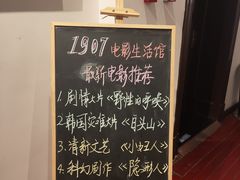 1907电影生活馆
最新电影推荐
1.剧情大片《野性的呼唤》
2.韩国灾难片《白头山》
3.清新文艺《小妇人》
4.科幻剧作《隐形人》